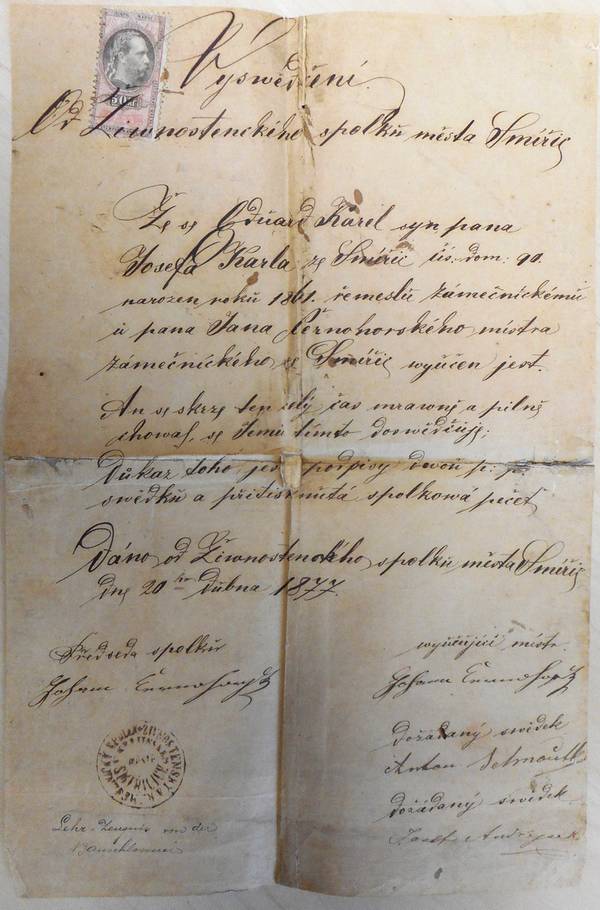 Vyswědčení.
Od Živnostenckého spolků města Smiřic
Že se Eduard Karel syn pana
Josefa Karla ze Smiřic čís: dom: 90.
narozen roků 1861. řemeslů zámečnickémů
ů pana Jana Černohorského místra
zámečnického ze Smiřic wyůčen jest.
An se skrze ten celý čas mrawně a pilně
chowal, se Jemů tímto doswědčůje;
Důkaz toho jest podpisy dwoů p: p:
swědků a přitisknůtá spolkowá pečeť
Dáno od Žiwnostenckého spolků města Smiřic
dne 20 ho Důbna 1877.
Předseda spolků
Johann Černohorský
wyůčůjící místr.
Johann Černohorský
dožádaný swědek
Anton
dožádaný swědek
Josef
Lehr-Zeugnis von der
50 kr